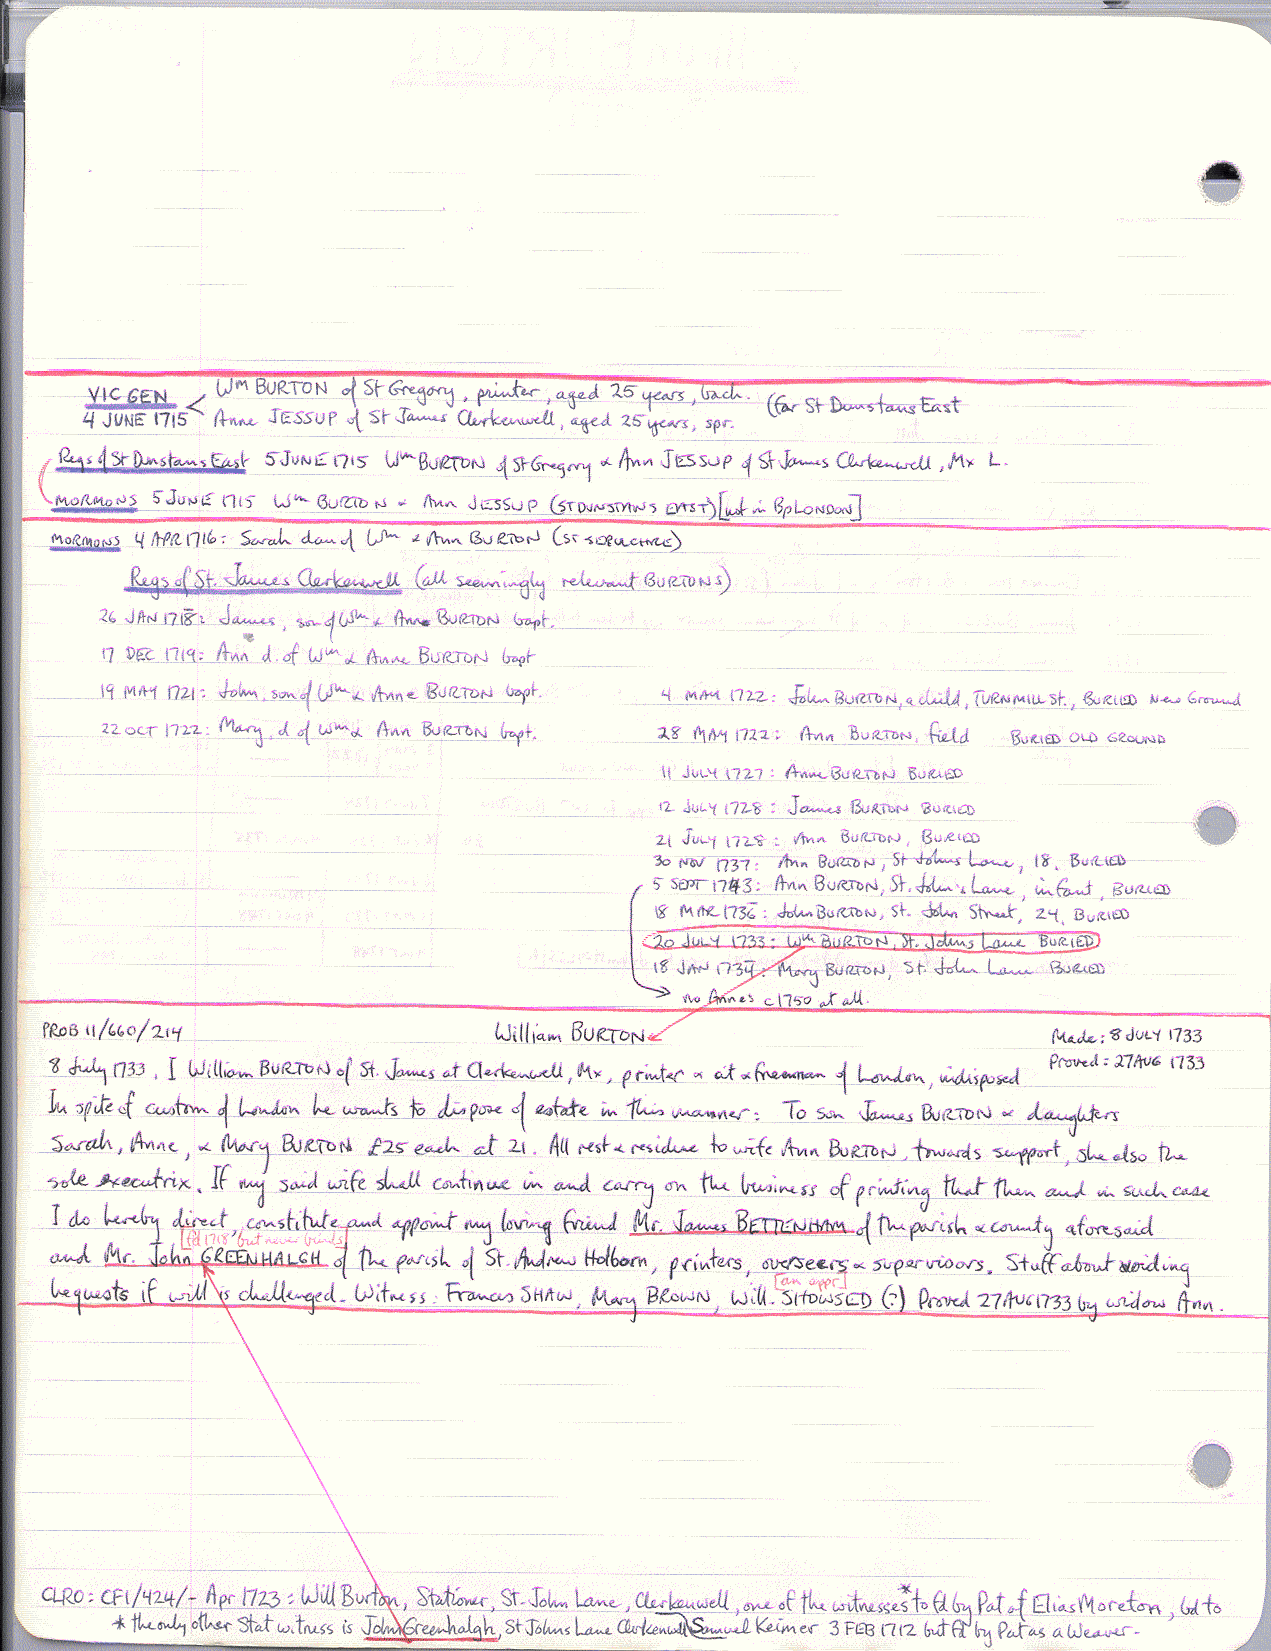 VIC GEN
4 JUNE 1715
Wm BURTON of St Gregory, printer, aged 25 years, bach. (for St Dunstans East
Anne JESSUP of St James Clerkenwell, aged 25 years, spr.
Regs of St Dunstans East 5 JUNE 1715 Wm BURTON of St Gregory & Ann JESSUP of St James Clerkenwell, Mx L.
MORMONS 5 JUNE 1715 Wm BURTON & Ann JESSUP (ST DUNSTAN'S EAST) [not in Bp LONDON]
MORMONS 4 APR 1716: Sarah dau of Wm & Ann BURTON (ST SEPULCHRE)
Regs of St. James Clerkenwell (all seemingly relevant BURTONS)
26 JAN 1718: James, son of Wm & Ann BURTON bapt.
17 DEC 1719: Ann d. of Wm & Anne BURTON bapt
19 MAY 1721: John, son of Wm & Anne BURTON bapt.
22 OCT 1722: Mary, d of Wm & Ann BURTON bapt.
4 MAY 1722: John BURTON, a child, TURNMILL St., BURIED New Ground
28 MAY 1722: Ann BURTON, field BURIED OLD GROUND
11 JULY 1727: Anne BURTON BURIED
12 JULY 1728: James BURTON BURIED
21 JULY 1728: Ann BURTON, BURIED
30 NOV 1737: Ann BURTON, St Johns Lane, 18, BURIED
5 SEPT 1743: Ann BURTON, St. John's Lane, infant, BURIED
18 MAR 1736: John BURTON, St. John Street, 24, BURIED
20 JULY 1733: Wm BURTON, St. Johns Lane BURIED
18 JAN 1734: Mary BURTON, St. John Lane BURIED
no Annes c1750 at all.
PROB 11/660/214 William BURTON Made: 8 JULY 1733
Proved: 27 AUG 1733
8 July 1733. I William BURTON of St. James at Clerkenwell, Mx, printer & cit & freeman of London, indisposed
In spite of custom of London he wants to dispose of estate in this manner: To son James BURTON & daughters
Sarah, Anne, & Mary BURTON £25 each at 21. All rest & residue to wife Ann BURTON, towards support, she also the
sole executrix. If my said wife shall continue in and carry on the business of printing that then and in such case
I do hereby direct, constitute and appoint my loving friend Mr. James BETTENHAM of the parish & county aforesaid
[fd 1718 but never binds]
and Mr. John GREENHALGH of the parish of St. Andrew Holborn, printers, overseers & supervisors. Stuff about voiding
[an appr]
bequests if will is challenged. Witness: Frances SHAW, Mary BROWN, Will. SITOWSED (?) Proved 27 AUG 1733 by widow Ann.
CLRO: CF1/424/- Apr 1723: Will Burton, Stationer, St. John Lane, Clerkenwell, one of the witnesses * to fd by Pat of Elias Moreton, bd to
* the only other Stat witness is John Greenhalgh, St Johns Lane Clerkenwell) Samuel Keimer 3 FEB 1712 but fd by Pat as a Weaver-